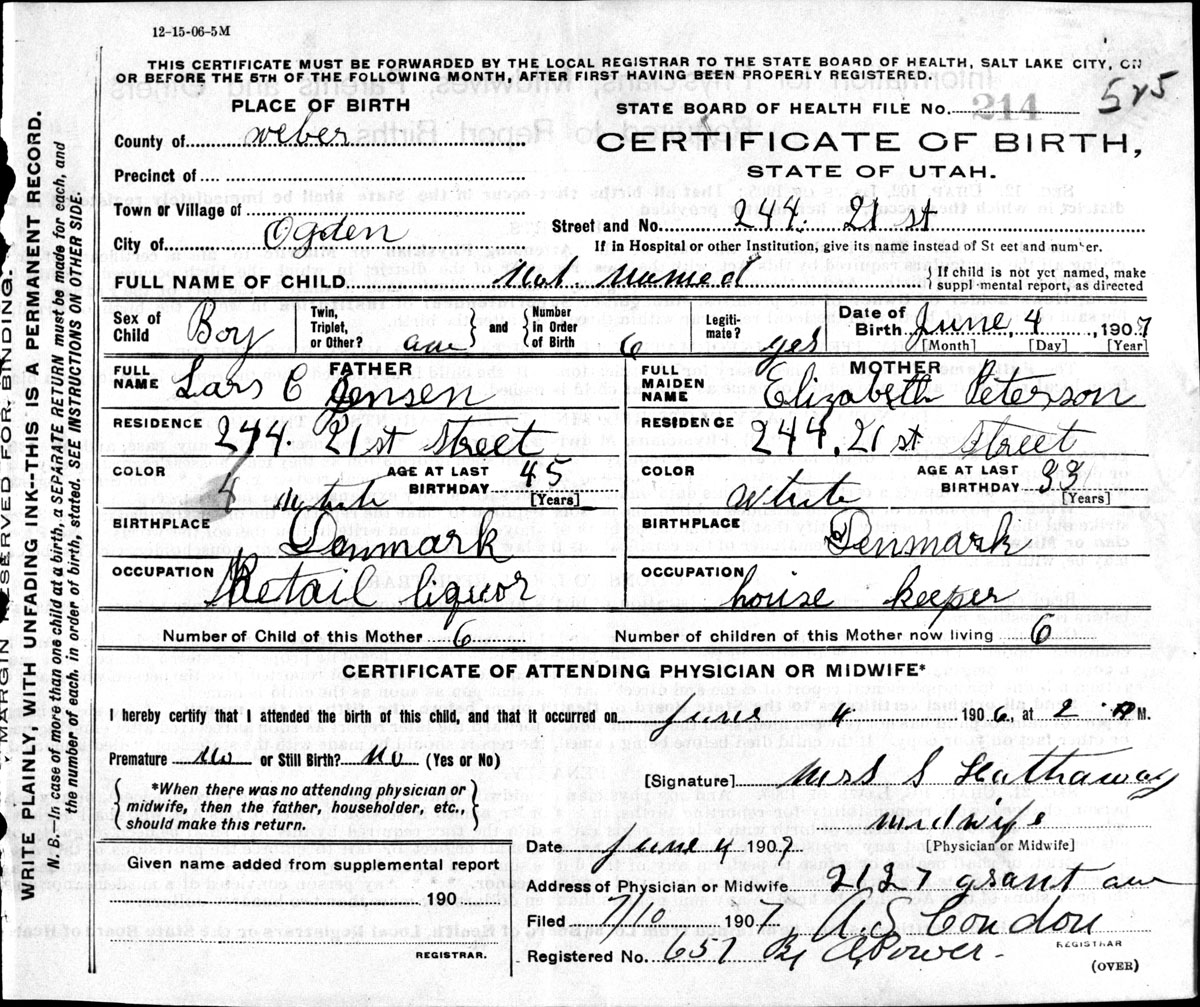 12-15-06-5M
THIS CERTIFICATE MUST BE FORWARDED BY THE LOCAL REGISTRAR TO THE STATE BOARD OF HEALTH, SALT LAKE CITY, ON
OR BEFORE THE 5TH OF THE FOLLOWING MONTH, AFTER FIRST HAVING BEEN PROPERLY REGISTERED.
PLACE OF BIRTH
STATE BOARD OF HEALTH FILE No. 214 525
County of Weber
CERTIFICATE OF BIRTH,
STATE OF UTAH.
Precinct of
Town or Village of
Street and No. 244. 21st
City of Ogden
If in Hospital or other Institution, give its name instead of St eet and num er.
FULL NAME OF CHILD Not. named
If child is not yet named, make suppl mental report, as directed
Sex of Child Boy
Twin, Triplet, or Other?
and
Number in Order of Birth 6
Legiti-mate? yes
Date of Birth June, 4, 1907
[Month] [Day] [Year]
FATHER
FULL NAME Lars C Jensen
RESIDENCE 244. 21st Street
COLOR white
AGE AT LAST BIRTHDAY 45
[Years]
BIRTHPLACE Denmark
OCCUPATION Retail liquor
MOTHER
FULL MAIDEN NAME Elizabeth Peterson
RESIDENCE 244, 21st Street
COLOR white
AGE AT LAST BIRTHDAY 33
[Years]
BIRTHPLACE Denmark
OCCUPATION house keeper
Number of Child of this Mother 6
Number of children of this Mother now living 6
CERTIFICATE OF ATTENDING PHYSICIAN OR MIDWIFE*
I hereby certify that I attended the birth of this child, and that it occurred on June 4 1906, at 2 M.
Premature No or Still Birth? No (Yes or No)
*When there was no attending physician or
midwife, then the father, householder, etc.,
should make this return.
[Signature] Mrs S Hathaway
midwife
[Physician or Midwife]
Date June 4 1907.
Given name added from supplemental report
190
REGISTRAR.
Address of Physician or Midwife 2127 grant ave
Filed 7/10 1907 A.S. Condon
REGISTRAR
Registered No. 657 By A Power.
(OVER)
MARGIN RESERVED FOR BINDING.
WRITE PLAINLY, WITH UNFADING INK--THIS IS A PERMANENT RECORD.
N. B.-In case of more than one child at a birth, a SEPARATE RETURN must be made for each, and
the number of each, in order of birth, stated. SEE INSTRUCTIONS ON OTHER SIDE.